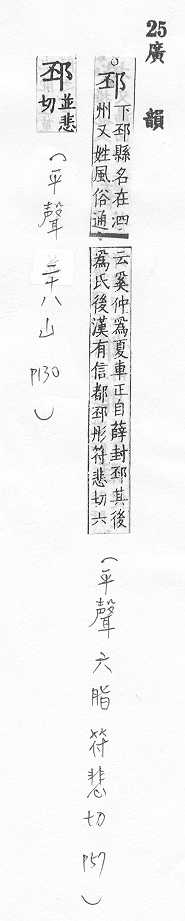 25廣韻
○邳下邳縣名在泗
州又姓風俗通
云奚仲爲夏車正自薛封邳其後
爲氏後漢有信都邳彤符悲切六
(平聲 六脂 符悲切 p57)
邳並悲
切
(平聲 二十八山 p130)